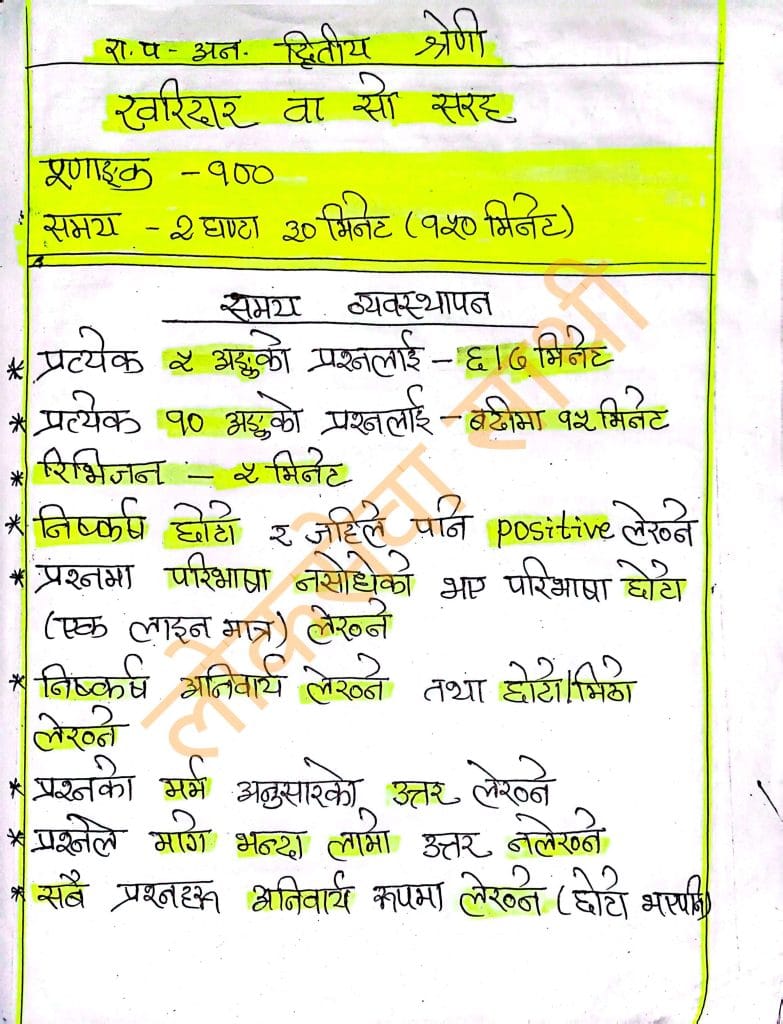 रा.प-अन. द्वितीय श्रेणी
खरिदार वा सो सरह
पूणाङ्क - १००
समय - २ घण्टा ३० मिनेट (१५० मिनेट)
समय व्यवस्थापन
* प्रत्येक ५ अङ्कको प्रश्नलाई - ६।७ मिनेट
* प्रत्येक १० अङ्कको प्रश्नलाई - बढीमा १५ मिनेट
* रिभिजन - ५ मिनेट
* निष्कर्ष छोटो र जहिले पनि positive लेख्ने
* प्रश्नमा परिभाषा नसोधेको भए परिभाषा छोटो
(एक लाइन मात्र) लेख्ने
* निष्कर्ष अनिवार्य लेख्ने तथा छोटो/मिठो
लेख्ने
* प्रश्नको मर्म अनुसारको उत्तर लेख्ने
* प्रश्नले मागे भन्दा लामो उत्तर नलेख्ने
* सबै प्रश्नहरू अनिवार्य रूपमा लेख्ने (छोटो भएपनि)
लोकसेवा साथी